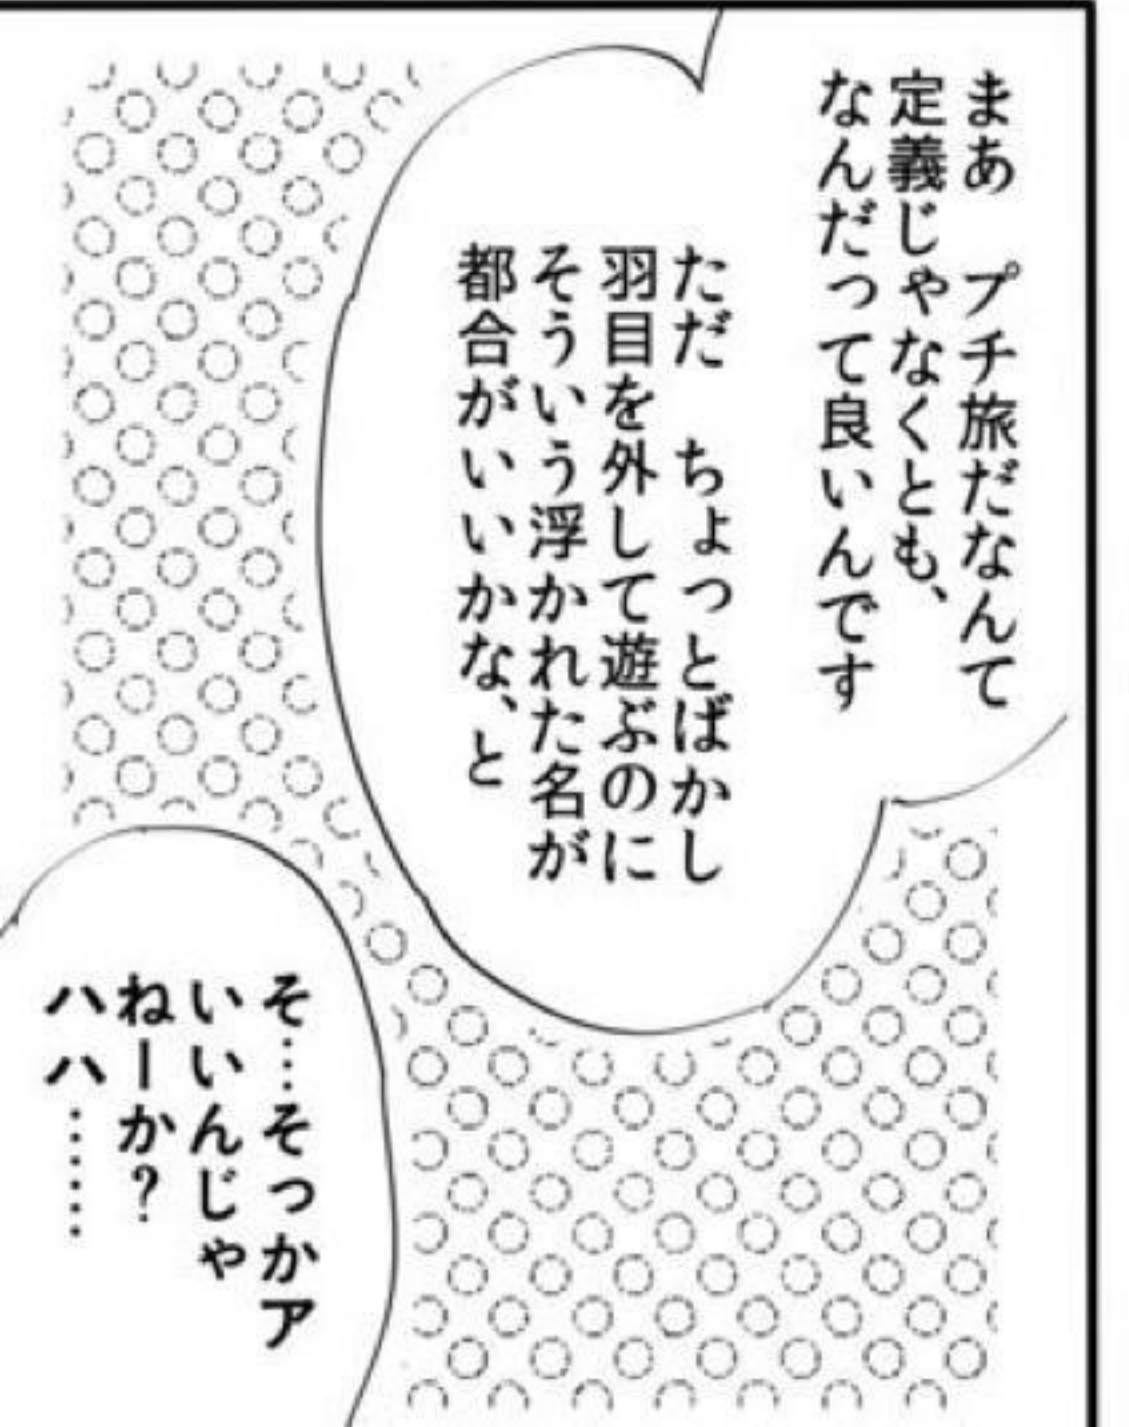 まあ　プチ旅だなんて
定義じゃなくとも、
なんだって良いんです
ただ　ちょっとばかし
羽目を外して遊ぶのに
そういう浮かれた名が
都合がいいかな、と
そ…そっかア
いいんじゃ
ねーか？
ハハ……